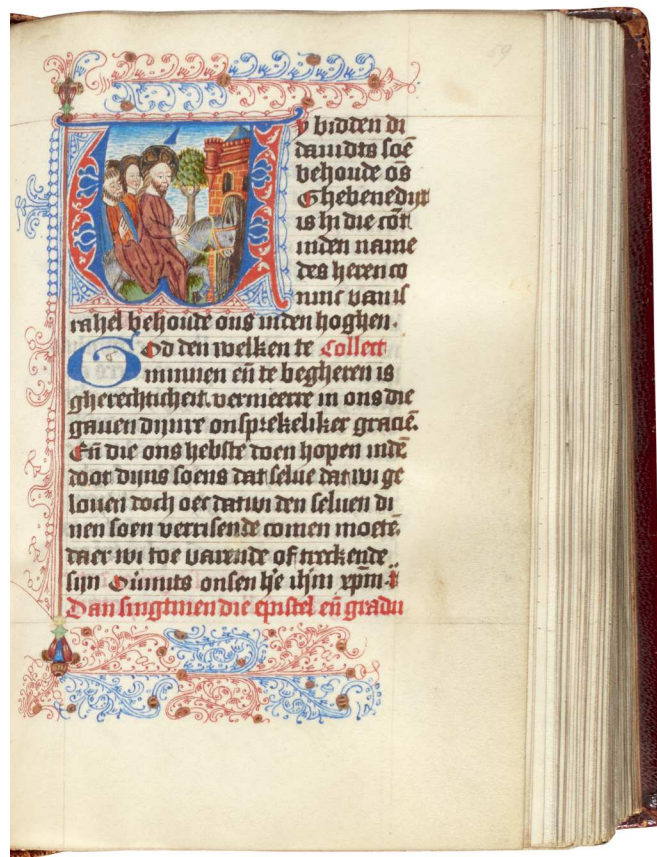 69
Wy bidden di
dauidts soē
behoude ōs
Ghebenedijt
is hi die cōt
inden name
des heren co
ninc van is
rahel behoude ons inden hoghen.
God den welken te Collect
minnen eñ te begheren is
gherechticheit. vermeerre in ons die
gauen dijnre onsprekeliker graciē.
Eñ die ons hebste doen hopen indē
doot dijns soens dat selue dat wi ge
louen doch oec dat wi den seluen di
nen soen verrisende comen moetē.
daer wi toe varende of treckende
sijn Ouimits onsen he ihm xpm.
Dan singtmen die epistel eñ gradu